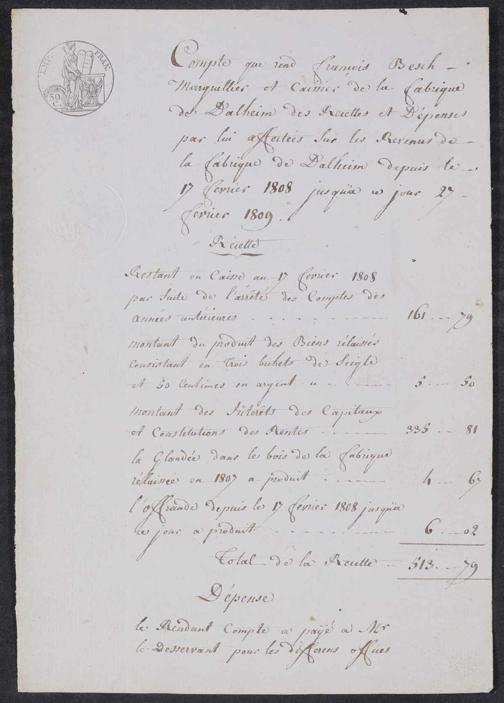 EMP. FRAN.
50
Compte que rend François Besch
Marguillier et Caissier de la fabrique
de Dalheim des Recettes et Dépenses
par lui affectées sur les Revenus de
la fabrique de Dalheim depuis le
17 fevrier 1808 jusqu'a ce jour 27
fevrier 1809.
Récette
Restant en Caisse au 17 fevrier 1808
par suite de l'arrêté des Comptes des
années antérieures 161 79
montant du produit des Biens rélaissés
consistant en Trois bichets de Seigle
et 50 Centimes en argent 5 50
montant des Intérêts des Capitaux
et Constitutions des Rentes 335 81
la Glandée dans les bois de la fabrique
rélaissée en 1807 a produit 4 67
l'offrande depuis le 17 fevrier 1808 jusqu'a
ce jour a produit 6 02
Total de la Recette 513 79
Dépense
le Rendant Compte a payé a Mr
le Desservant pour les differens offices